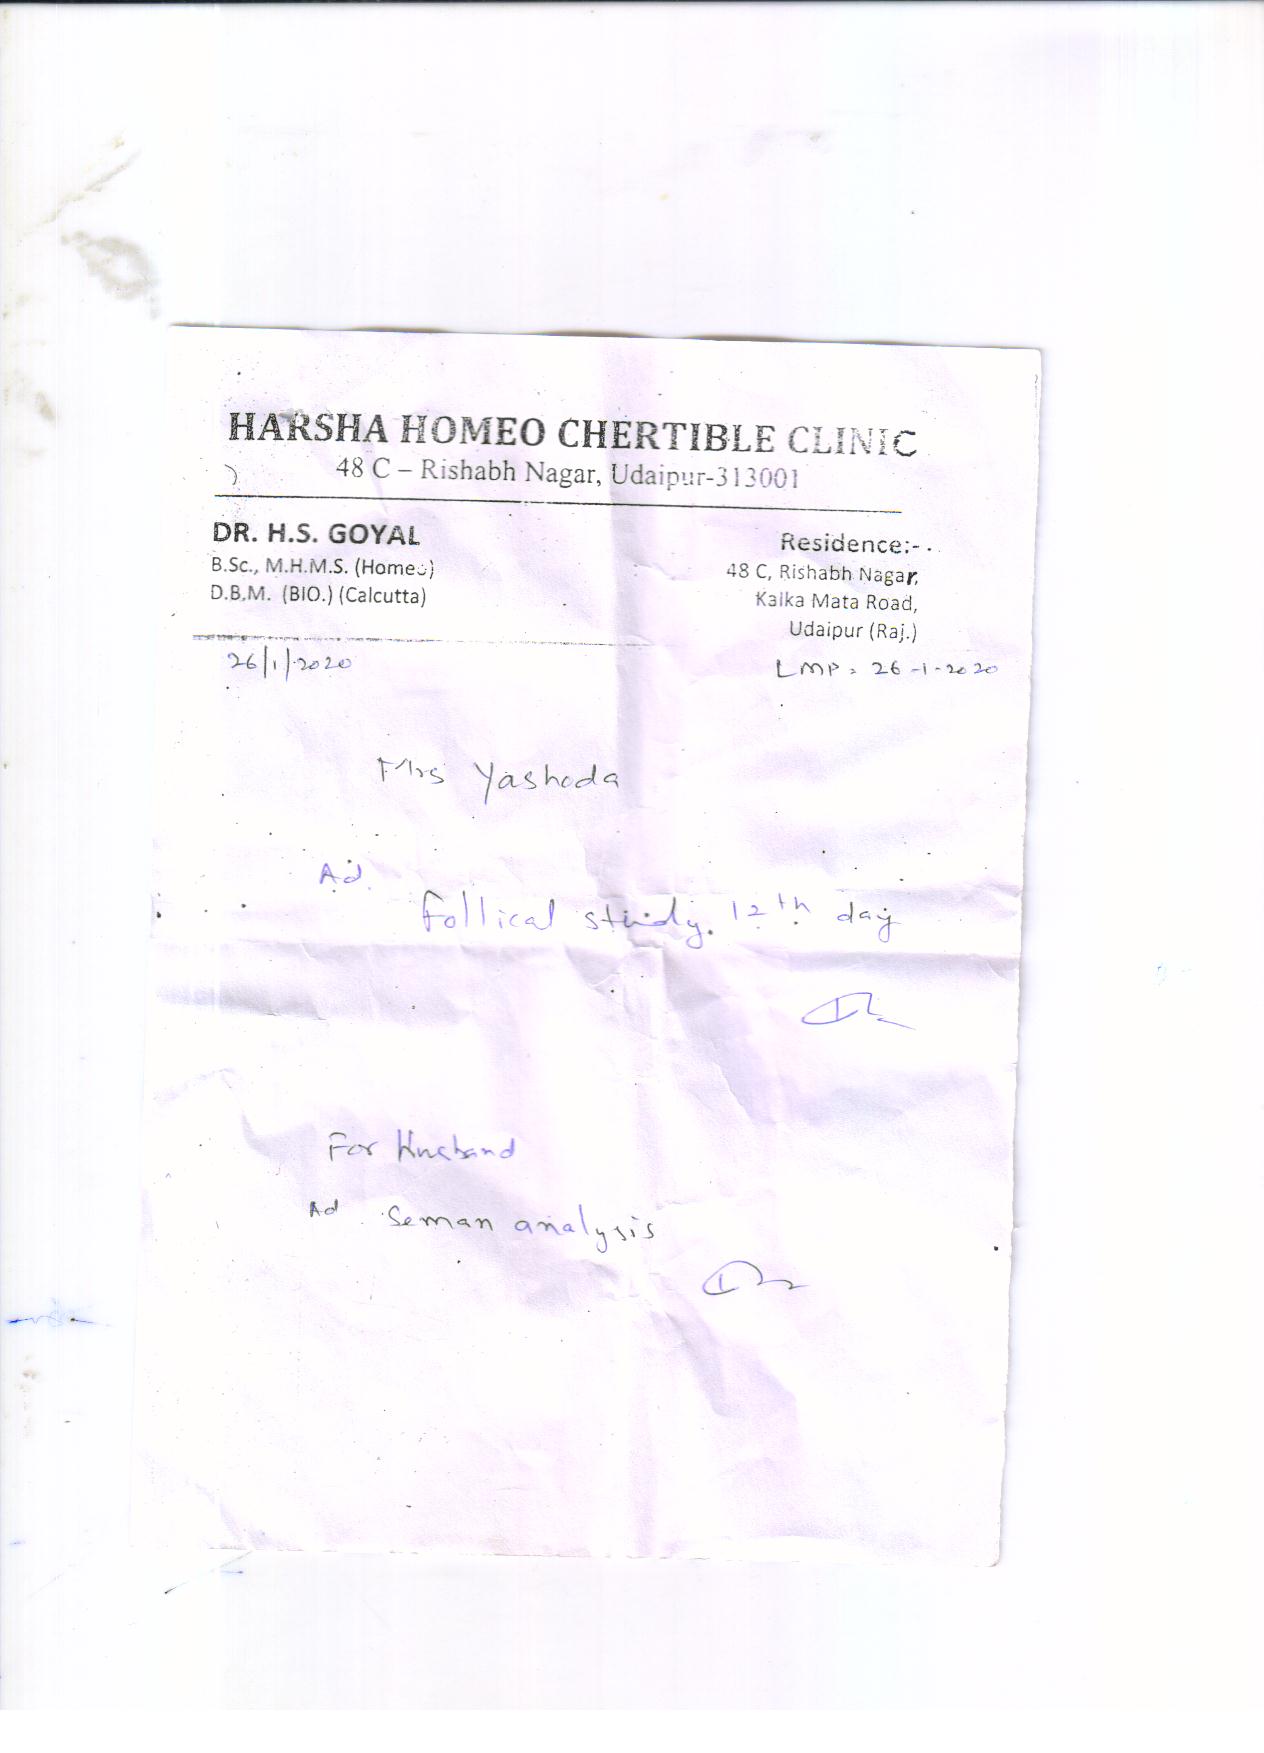 HARSHA HOMEO CHERTIBLE CLINIC
48 C – Rishabh Nagar, Udaipur-313001
DR. H.S. GOYAL
B.Sc., M.H.M.S. (Homeo)
D.B.M. (BIO.) (Calcutta)
Residence:-
48 C, Rishabh Nagar,
Kalka Mata Road,
Udaipur (Raj.)
26/1/2020
LMP = 26-1-2020
Mrs Yashoda
Ad.
Follical study. 12th day
For Husband
Ad. Seman analysis